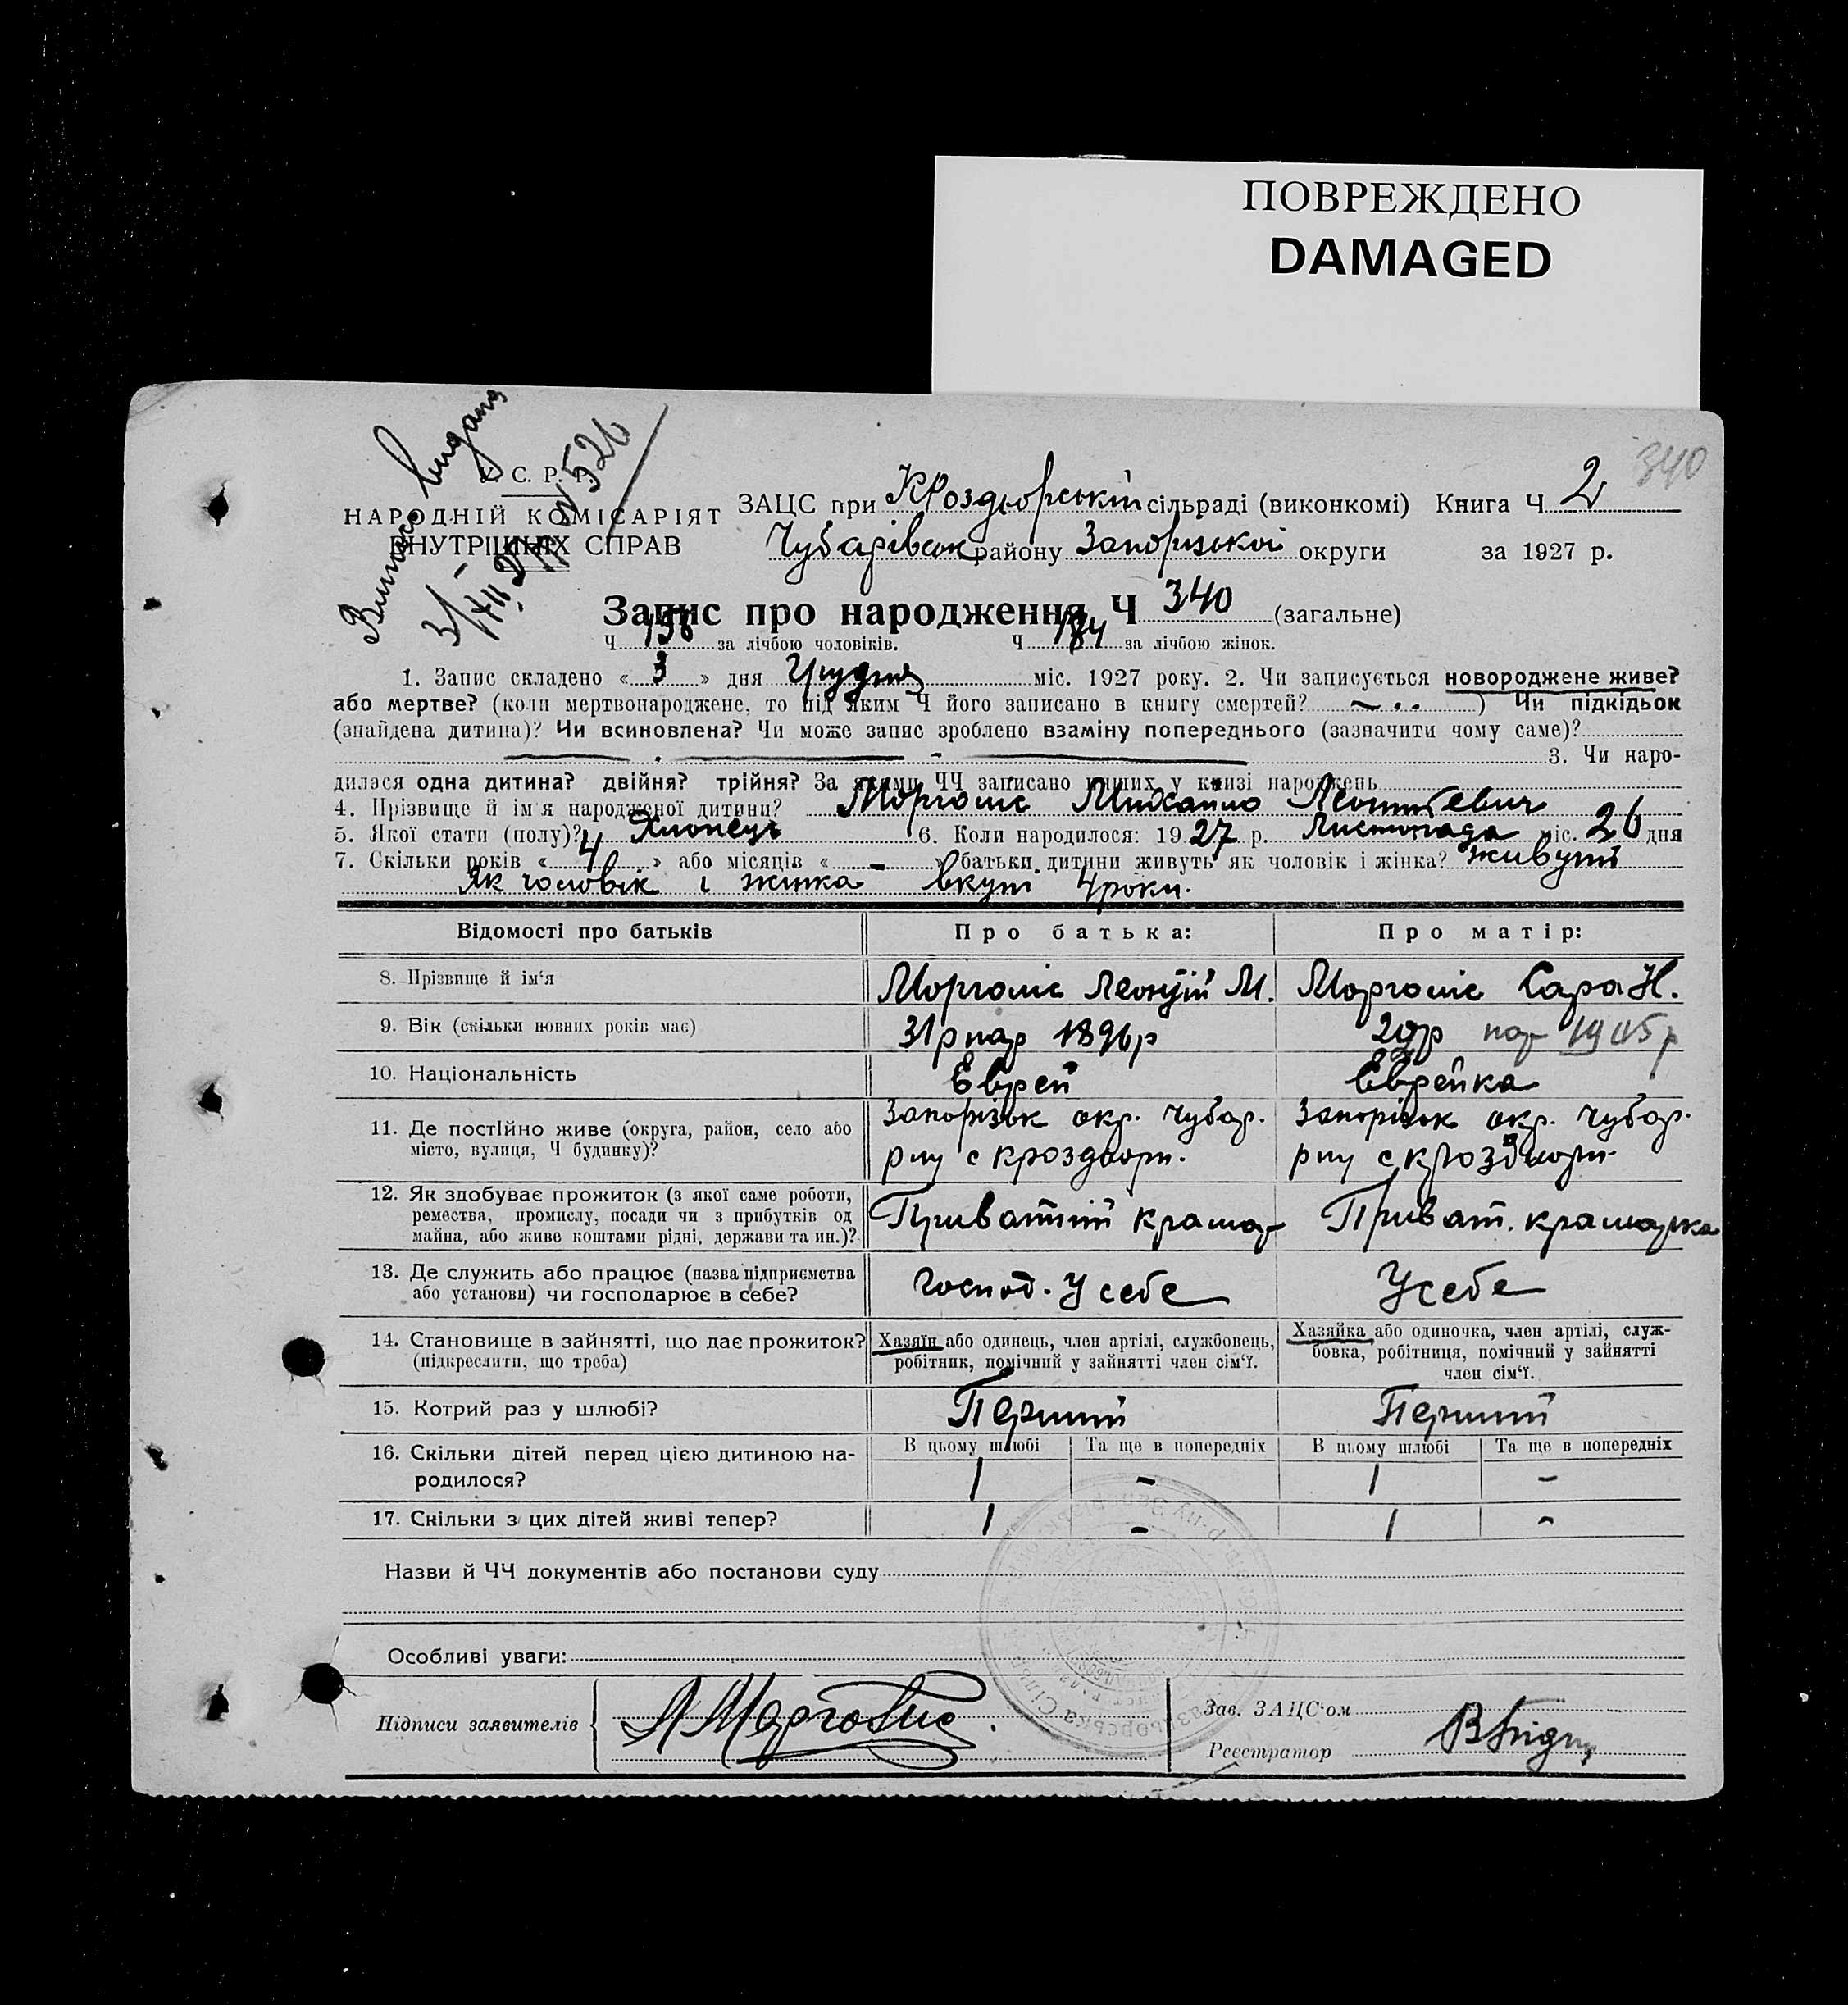 ПОВРЕЖДЕНО
DAMAGED
340
Випись видана
3/XII 27 р N 526
У. С. Р. Р.
НАРОДНІЙ КОМІСАРІЯТ
ВНУТРІШНІХ СПРАВ
ЗАЦС при КРоздьорській сільраді (виконкомі) Книга Ч 2
Чубарівськ району Запорізької округи за 1927 р.
Запис про народження Ч 340 (загальне)
Ч 156 за лічбою чоловіків. Ч 184 за лічбою жінок.
1. Запис складено « 3 » дня Грудня міс. 1927 року. 2. Чи записується новороджене живе?
або мертве? (коли мертвонароджене, то під яким Ч його записано в книгу смертей? ) Чи підкідьок
(знайдена дитина)? Чи всиновлена? Чи може запис зроблено взаміну попереднього (зазначити чому саме)?
3. Чи наро-
дилася одна дитина? двійня? трійня? За якими ЧЧ записано инших у книзі народжень
4. Прізвище й ім'я народженої дитини? Морголіс Михайло Леонтьевич
5. Якої стати (полу)? Хлопець 6. Коли народилося: 1927 р. Листопада міс. 26 дня
7. Скільки років « 4 » або місяців « - » батьки дитини живуть як чоловік і жінка? живуть
як чоловік і жінка вкупі 4 роки.
Відомості про батьків Про батька: Про матір:
8. Прізвище й ім'я Морголіс Леонтій М. Морголіс Сара Н.
9. Вік (скільки повних років має) 31 р нар 1896 р нар 1905 р
10. Національність Еврей Еврейка
11. Де постійно живе (округа, район, село або Запорізьк окр. Чубар. Запорізьк окр. Чубар.
місто, вулиця, Ч будинку)? р-ну с Кроздьори. р-ну с Кроздьори
12. Як здобуває прожиток (з якої саме роботи,
ремества, промислу, посади чи з прибутків од Приватній крамар Приват. крамарка
майна, або живе коштами рідні, держави та ин.)?
13. Де служить або працює (назва підприємства Господ. У себе У себе
або установи) чи господарює в себе?
14. Становище в зайнятті, що дає прожиток? Хазяїн або одинець, член артілі, службовець, Хазяйка або одиночка, член артілі, служ-
(підкреслити, що треба) робітник, помічний у зайнятті член сім'ї. бовка, робітниця, помічний у зайнятті
член сім'ї.
15. Котрий раз у шлюбі? Перший Перший
16. Скільки дітей перед цією дитиною на- В цьому шлюбі Та ще в попередніх В цьому шлюбі Та ще в попередніх
родилося? 1 - 1 -
17. Скільки з цих дітей живі тепер? 1 - 1 -
Назви й ЧЧ документів або постанови суду
Особливі уваги:
Підписи заявителів Л Марголис. Зав. ЗАЦС'ом
Реєстратор